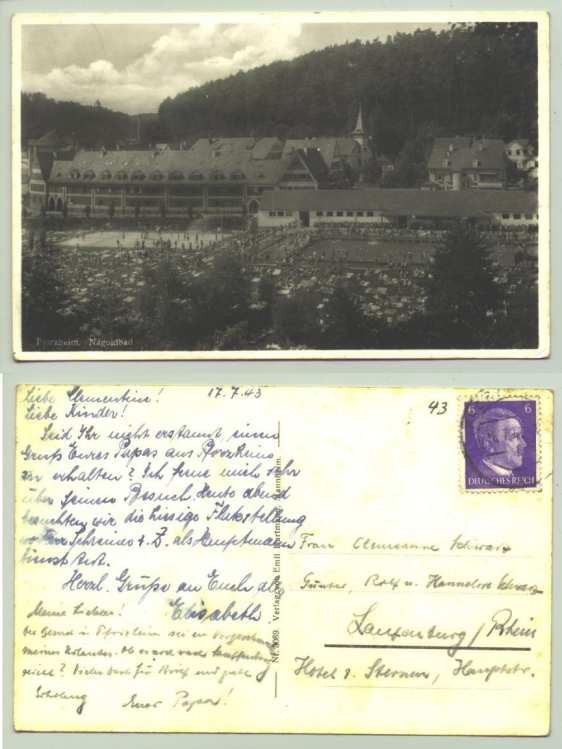 Pforzheim. Nagoldbad
Liebe Clementine! 17.7.43
Liebe Kinder!
43
Seid Ihr nicht erstaunt einen
Gruß Eures Papas aus Pforzheim
zu erhalten? Ich freue mich sehr
über seinen Besuch. Heute abend
besuchten wir die hiesige Flakstellung
wo Schreiner z. Z. als Hauptmann
Dienst tut.
Herzl. Grüße an Euch alle
Elisabeth
Meine Lieben!
bin gerne in Pforzheim
meines Urlaubes. Ob es
Vielen Dank für Brief und gute
Erholung Euer Papa!
6 6
DEUTSCHES REICH
Nr. 3089 Verlag von Emil Hartmann, Mannheim.
Frau Clemenzine Schwarz
Günter, Rolf u. Hannelore Schwarz
Laufenburg / Rhein
Hotel z. Sternen, Hauptstr.